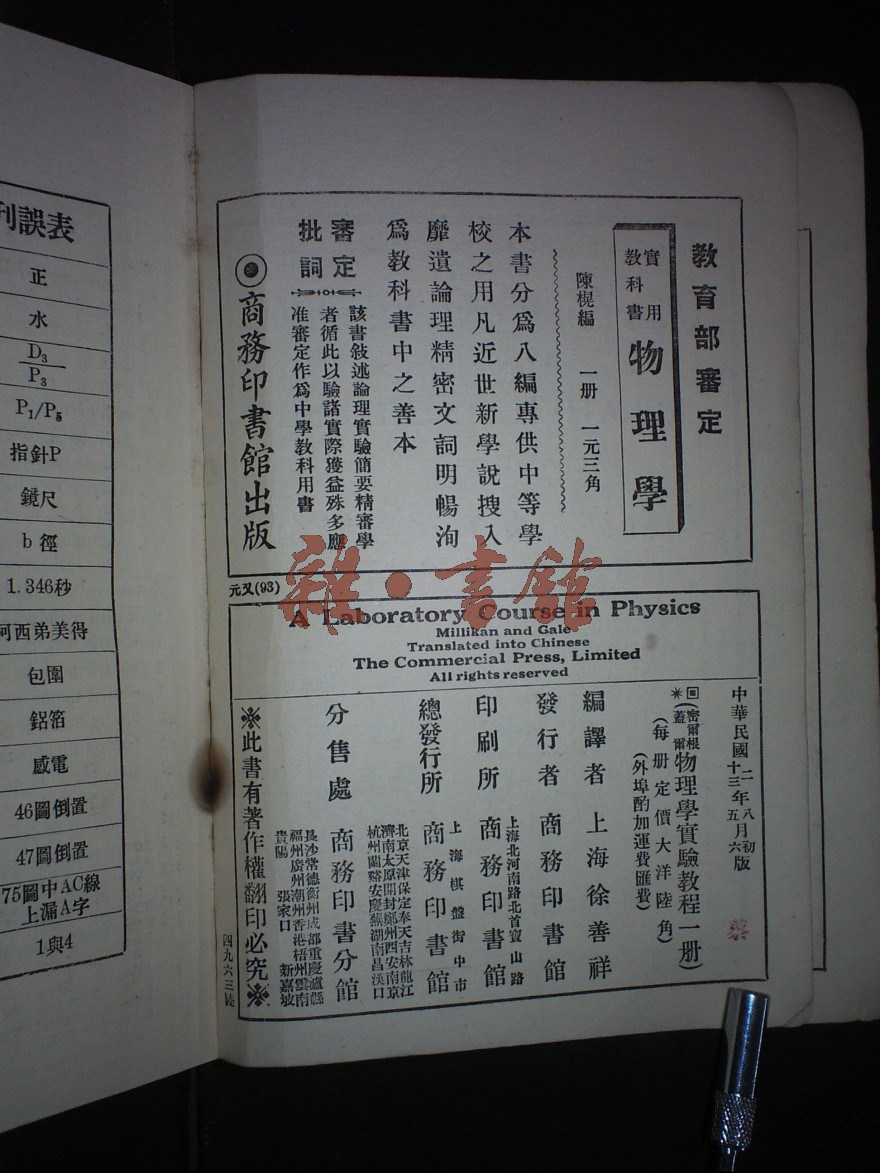 刊誤表
正
水
D3
P3
P1/P5
指針P
鏡尺
b徑
1.346秒
阿西弟美得
包圍
鋁箔
感電
46圖倒置
47圖倒置
75圖中AC線
上漏A字
1與4
教育部審定
實用
教科書
物理學
陳榥編 一册 一元三角
本書分爲八編專供中等學
校之用凡近世新學說搜入
靡遺論理精密文詞明暢洵
爲教科書中之善本
審定
批詞
該書敍述論理實驗簡要精審學
者循此以驗諸實際獲益殊多應
准審定作爲中學教科用書
商務印書館出版
元又(93)
雜·書館
A Laboratory Course in Physics
Millikan and Gale
Translated into Chinese
The Commercial Press, Limited
All rights reserved
中華民國
二年八月初版
十三年五月六版
回
(密爾根蓋爾物理學實驗教程一册)
(每册定價大洋陸角)
(外埠酌加運費匯費)
編譯者 上海徐善祥
發行者 商務印書館
上海北河南路北首寶山路
印刷所 商務印書館
上海棋盤街中市
總發行所 商務印書館
北京天津保定奉天吉林龍江
濟南太原開封鄭州西安南京
杭州蘭谿安慶蕪湖南昌漢口
分售處 商務印書分館
長沙常德衡州成都重慶瀘縣
福州廣州潮州香港梧州雲南
貴陽 張家口 新嘉坡
※此書有著作權翻印必究※
四九六三